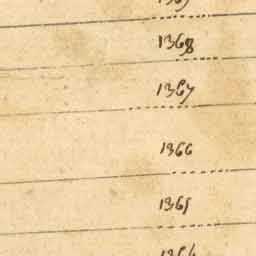 1368
1367
1366
1365